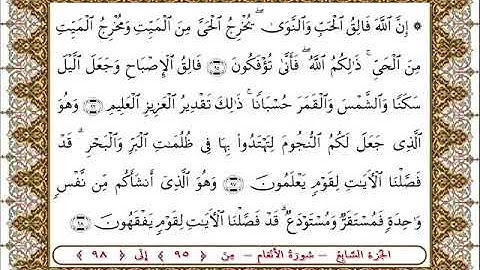 ۞ إِنَّ ٱللَّهَ فَالِقُ ٱلْحَبِّ وَٱلنَّوَىٰ ۖ يُخْرِجُ ٱلْحَىَّ مِنَ ٱلْمَيِّتِ وَمُخْرِجُ ٱلْمَيِّتِ
مِنَ ٱلْحَىِّ ۚ ذَٰلِكُمُ ٱللَّهُ ۖ فَأَنَّىٰ تُؤْفَكُونَ ﴿٩٥﴾ فَالِقُ ٱلْإِصْبَاحِ وَجَعَلَ ٱلَّيْلَ
سَكَنًا وَٱلشَّمْسَ وَٱلْقَمَرَ حُسْبَانًا ۚ ذَٰلِكَ تَقْدِيرُ ٱلْعَزِيزِ ٱلْعَلِيمِ ﴿٩٦﴾ وَهُوَ
ٱلَّذِى جَعَلَ لَكُمُ ٱلنُّجُومَ لِتَهْتَدُوا۟ بِهَا فِى ظُلُمَٰتِ ٱلْبَرِّ وَٱلْبَحْرِ ۗ قَدْ
فَصَّلْنَا ٱلْءَايَٰتِ لِقَوْمٍ يَعْلَمُونَ ﴿٩٧﴾ وَهُوَ ٱلَّذِىٓ أَنشَأَكُم مِّن نَّفْسٍ
وَٰحِدَةٍ فَمُسْتَقَرٌّ وَمُسْتَوْدَعٌ ۗ قَدْ فَصَّلْنَا ٱلْءَايَٰتِ لِقَوْمٍ يَفْقَهُونَ ﴿٩٨﴾
الجزء السَّابع – سُورَةُ الأنْعَام – مِنَ ﴿ ٩٥ ﴾ إلَى ﴿ ٩٨ ﴾